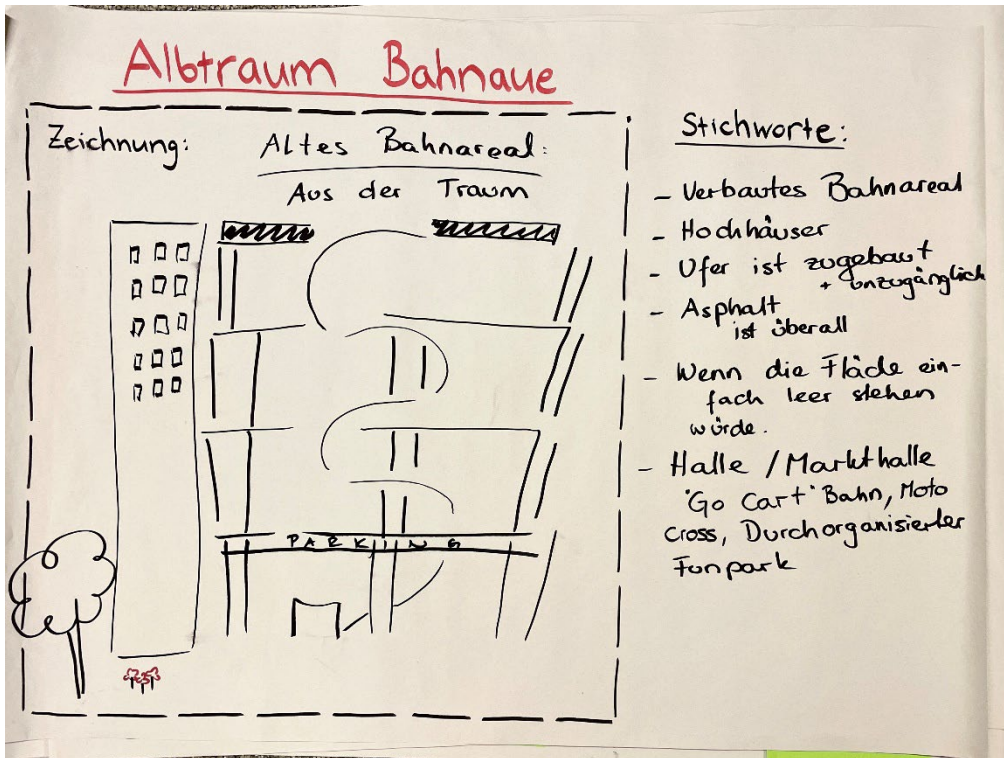 Albtraum Bahnaue
Zeichnung:
Altes Bahnareal:
Aus der Traum
PARKING
Stichworte:
- Verbautes Bahnareal
- Hochhäuser
- Ufer ist zugebaut
+ unzugänglich
- Asphalt
ist überall
- Wenn die Fläche ein-
fach leer stehen
würde.
- Halle / Markthalle
"Go Cart" Bahn, Moto
Cross, Durchorganisierter
Funpark